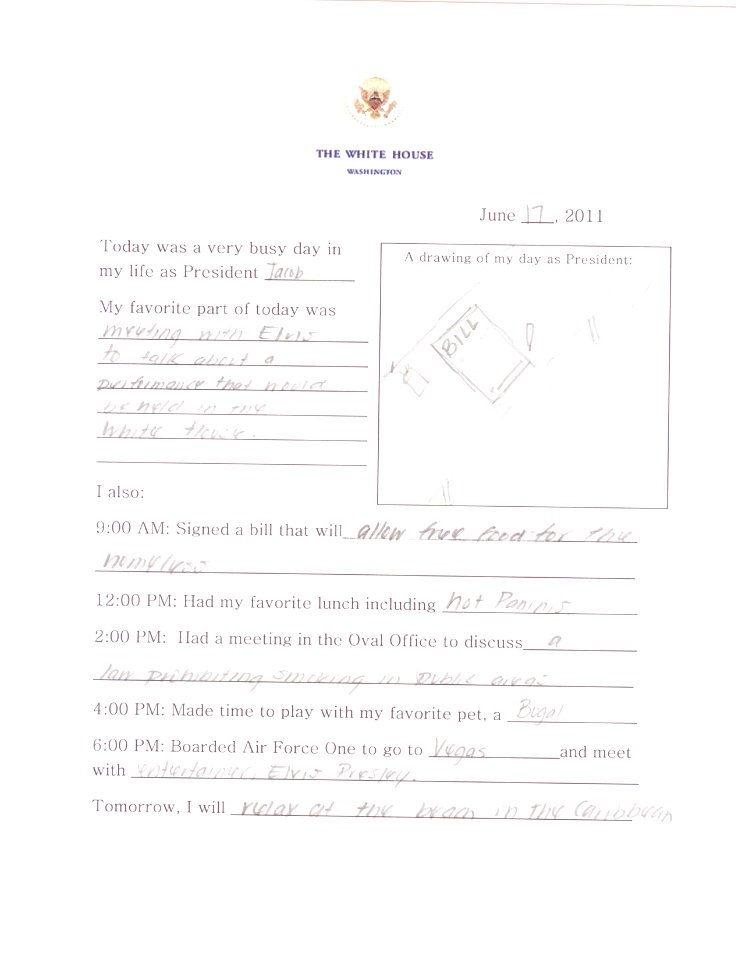 THE WHITE HOUSE
WASHINGTON
June 17, 2011
Today was a very busy day in
my life as President Jacob
My favorite part of today was
meeting with Elvis
to talk about a
performance that would
be held in the
White House.
A drawing of my day as President:
BILL
I also:
9:00 AM: Signed a bill that will allow free food for the
homeless
12:00 PM: Had my favorite lunch including hot Paninis
2:00 PM: Had a meeting in the Oval Office to discuss a
law prohibiting smoking in Public areas
4:00 PM: Made time to play with my favorite pet, a
6:00 PM: Boarded Air Force One to go to Vegas and meet
with entertainer, Elvis Presley.
Tomorrow, I will relax at the beach in The Caribbean